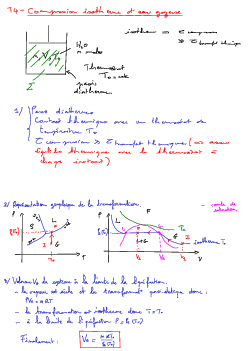 T4 - Compression isotherme d'eau gazeuse
isotherm ⇒ τ compression
≫ τ transfert thermique
H₂O
n moles
Thermostat
T₀ = cste
Σ
parois
diathermes
1/ Parois diathermes
Contact thermique avec un thermostat de
température T₀
τ compression ≫ τ transfert thermique (⇒ assure
équilibre thermique avec le thermostat à
chaque instant)
2/ Représentation graphique de la transformation.
P
S
L
F
I
G
T₀
T
P
L
F
L+G
G
T₀
isotherme T₀
V
3/ Volume V₀ du système à la limite de la liquéfaction.
- la vapeur est sèche et la transformation
PV₀ = nRT
- la transformation est isotherme donc T = T₀
- à la limite de liquéfaction P = Ps(T₀)
Finalement : V₀ = nRT₀ / Ps(T₀)